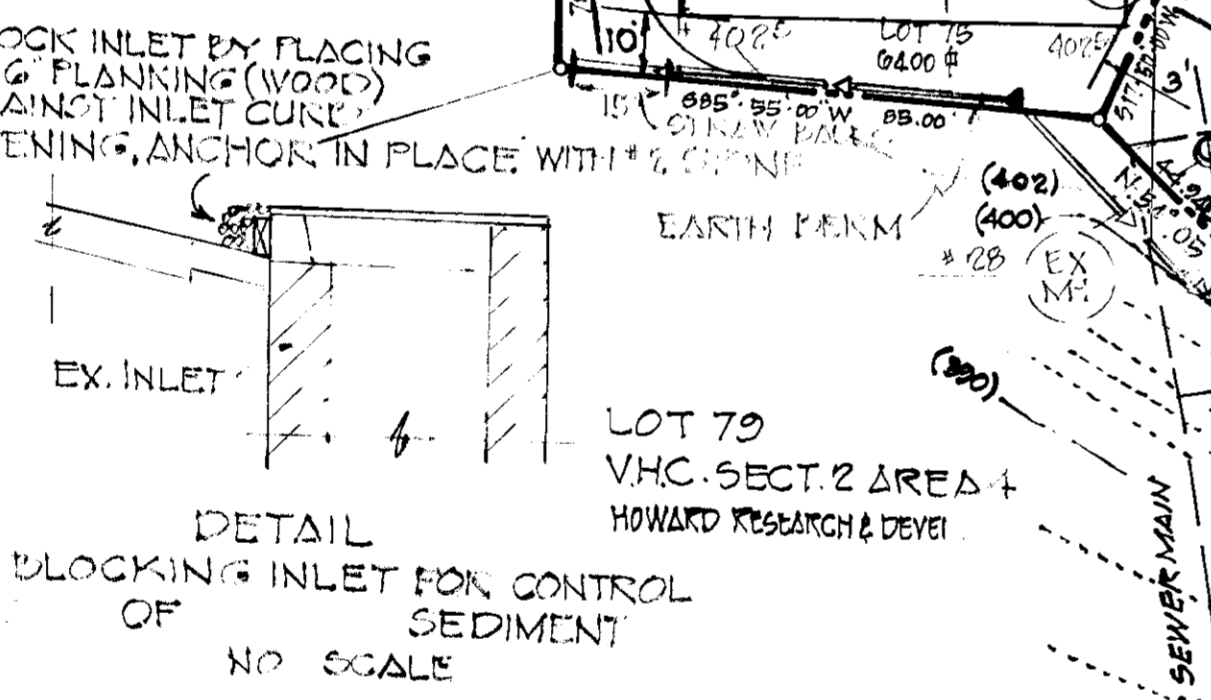 OCK INLET BY PLACING
6" PLANNING (WOOD)
AINST INLET CURB
ENING, ANCHOR IN PLACE WITH #2 STONE
10'
15'
402⁵
LOT 75
6400 ⌽
402⁵
3'
S85° 55' 00" W 85.00'
STRAW BALES
EARTH BERM
(402)
(400)
# 28
EX
MH
44.94
N. 51° 05'
(390)
EX. INLET
LOT 79
V.H.C. SECT. 2 AREA 4
HOWARD RESEARCH & DEVEL
DETAIL
BLOCKING INLET FOR CONTROL
OF SEDIMENT
NO SCALE
SEWER MAIN